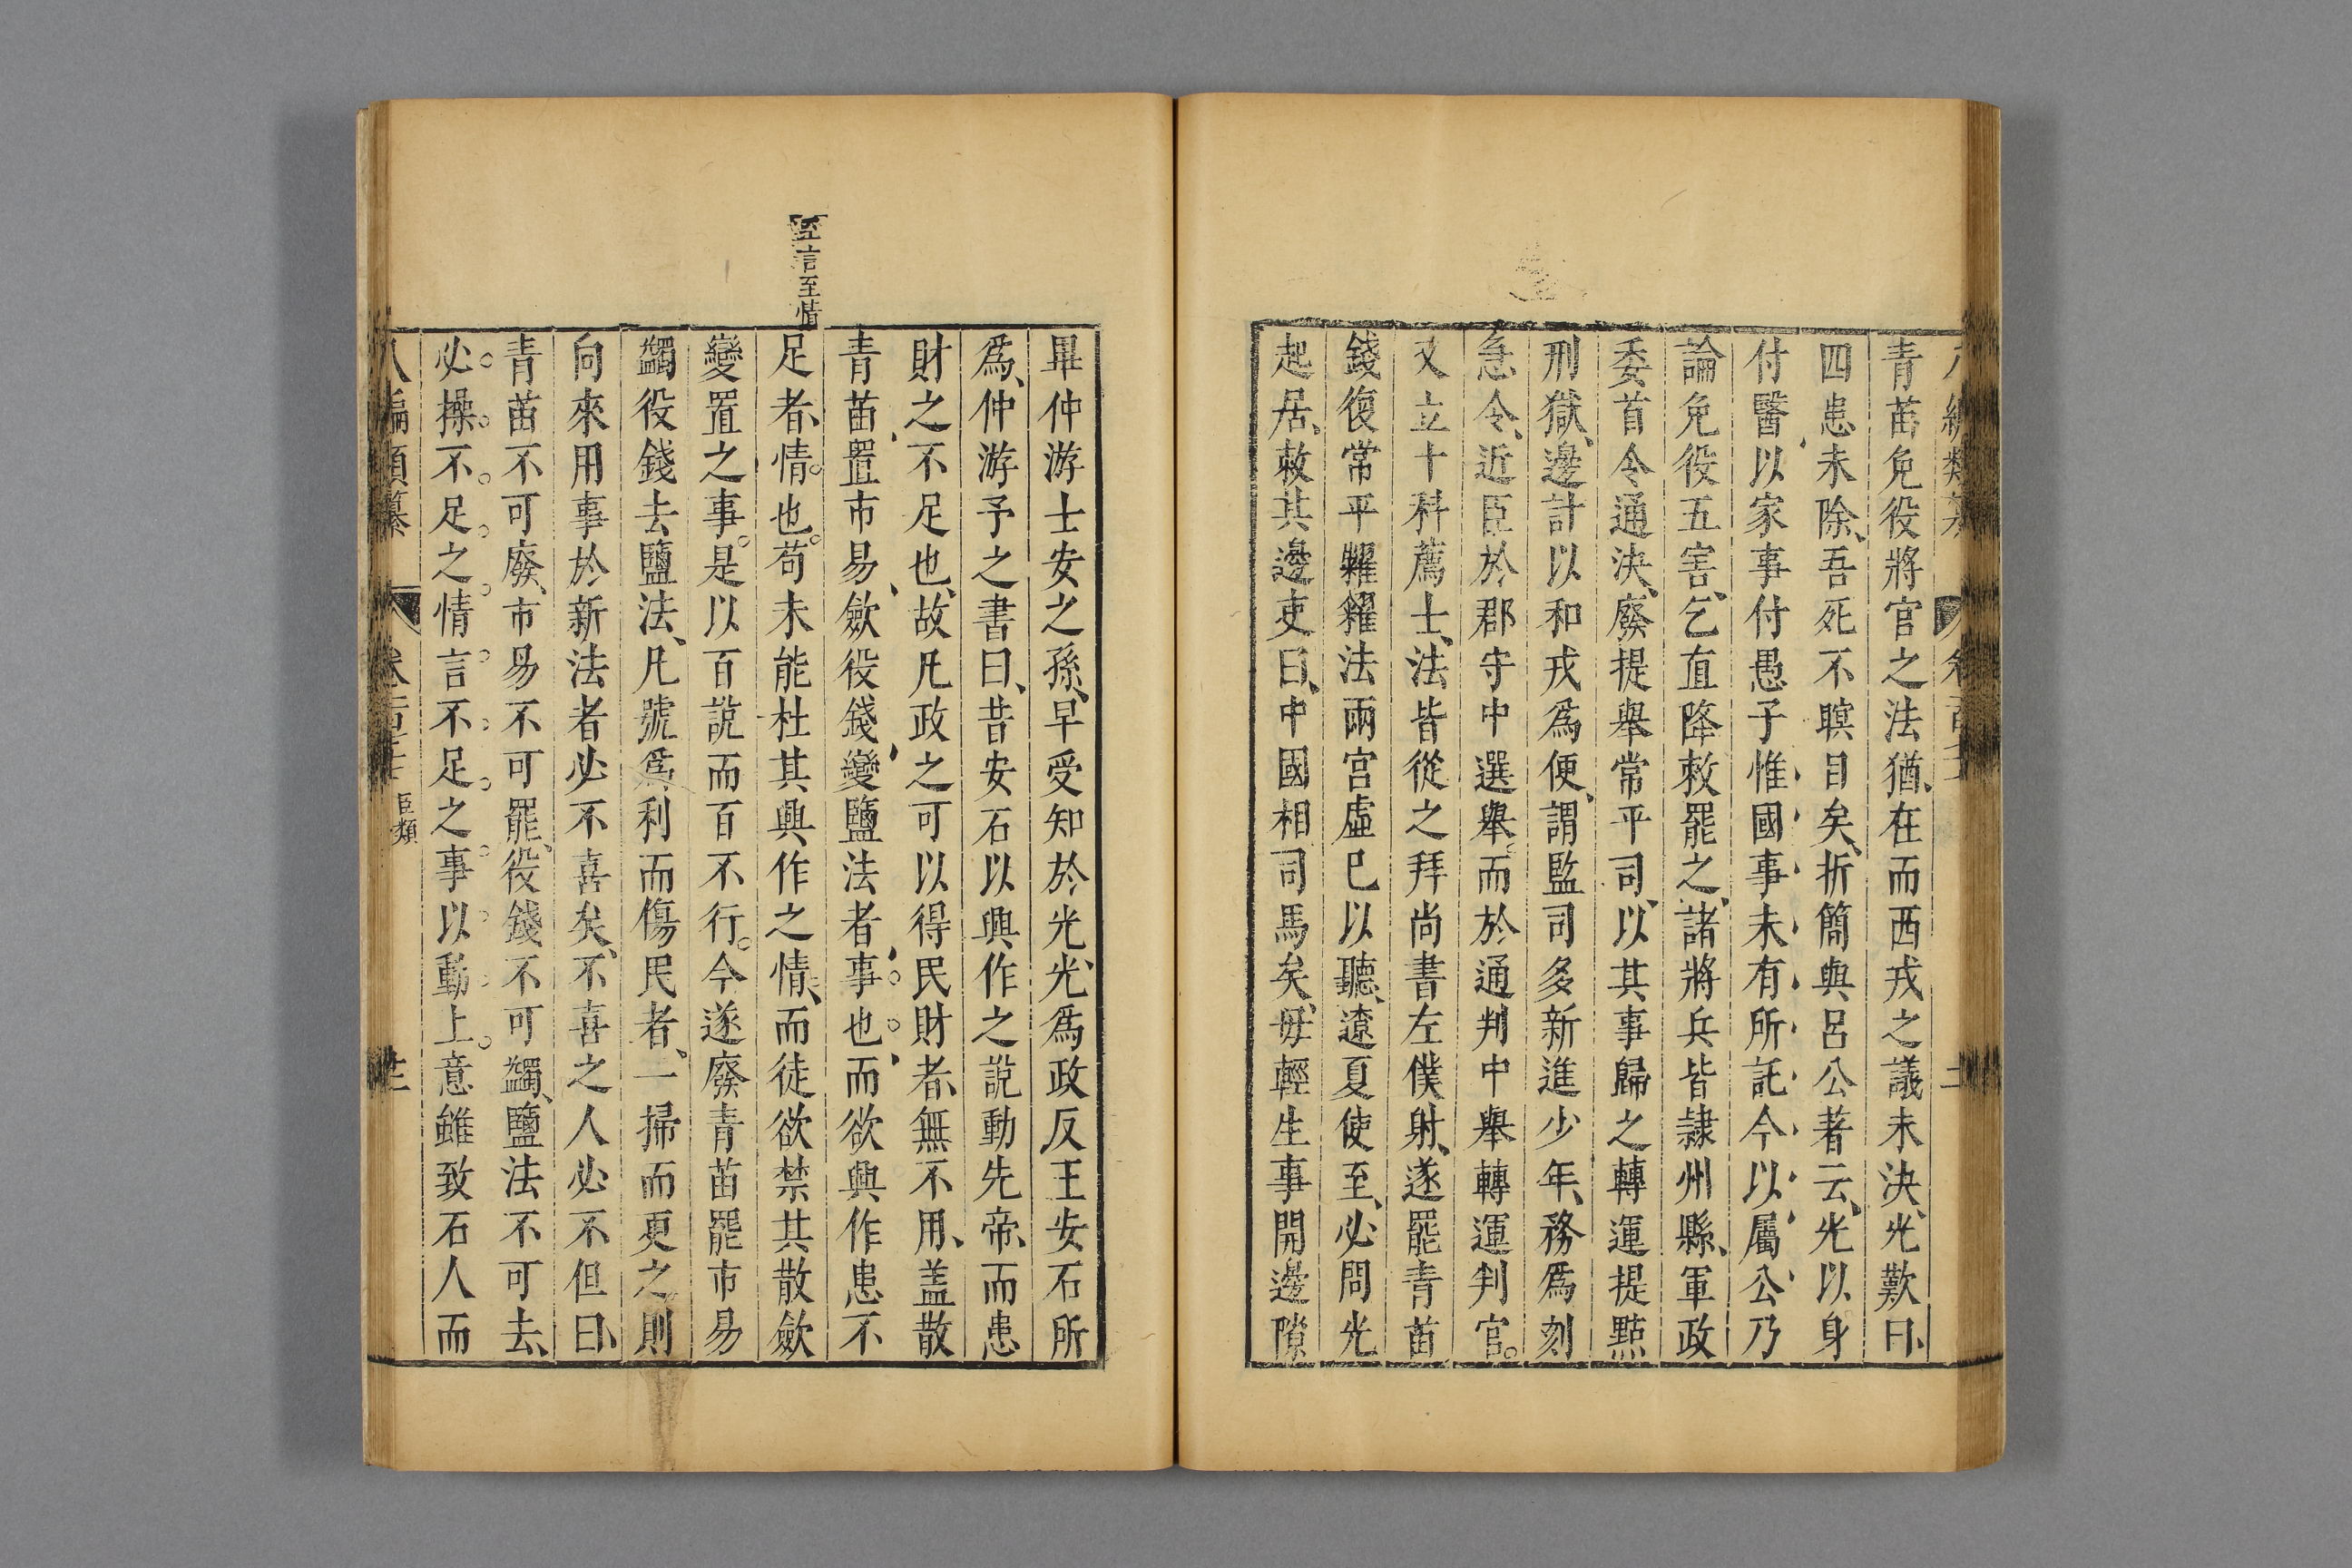 青苗免役將官之法猶在而西戎之議未決光歎曰
四患未除吾死不瞑目矣折簡與呂公著云光以身
付醫以家事付愚子惟國事未有所託今以屬公乃
論免役五害乞直降敕罷之諸將兵皆隸州縣軍政
委首令通決廢提舉常平司以其事歸之轉運提點
刑獄邊計以和戎爲便謂監司多新進少年務爲刻
急令近臣於郡守中選舉而於通判中舉轉運判官
又立十科薦士法皆從之拜尚書左僕射遂罷青苗
錢復常平糶糴法兩宮虛已以聽遼夏使至必問光
起居敕其邊吏曰中國相司馬矣毋輕生事開邊隙
畢仲游士安之孫早受知於光光爲政反王安石所
爲仲游予之書曰昔安石以興作之說動先帝而患
財之不足也故凡政之可以得民財者無不用盖散
青苗置市易歛役錢變鹽法者事也而欲興作患不
足者情也苟未能杜其興作之情而徒欲禁其散歛
變置之事是以百說而百不行今遂廢青苗罷市易
蠲役錢去鹽法凡號爲利而傷民者一掃而更之則
向來用事於新法者必不喜矣不喜之人必不但曰
青苗不可廢市易不可罷役錢不可蠲鹽法不可去
必操不足之情言不足之事以動上意雖致石人而
至言至情
八編類纂
臣類